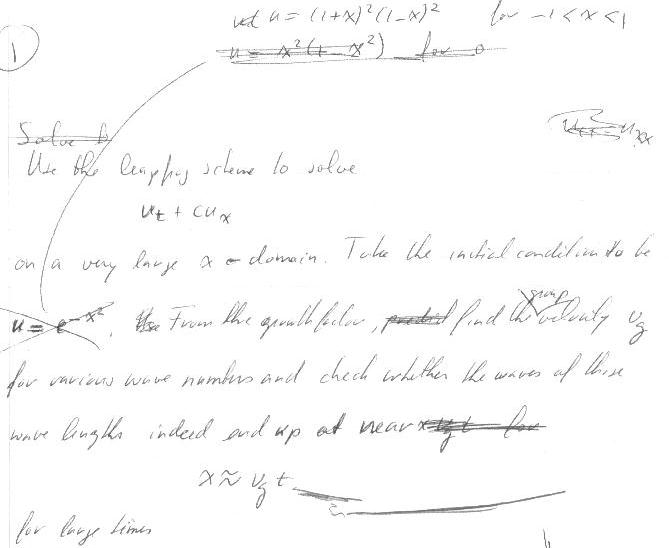 u = (1+x)²(1-x)² for -1<x<1
1
u = x²(1-x²) for 0
Solve
u_xx
Use the leapfrog scheme to solve
u_t + cu_x
on a very large x-domain. Take the initial condition to be
u = e^{-x²}. From the growth factor, predict find the group velocity v_g
for various wave numbers and check whether the waves of these
wave lengths indeed end up at near x
x ≈ v_g t
for large times